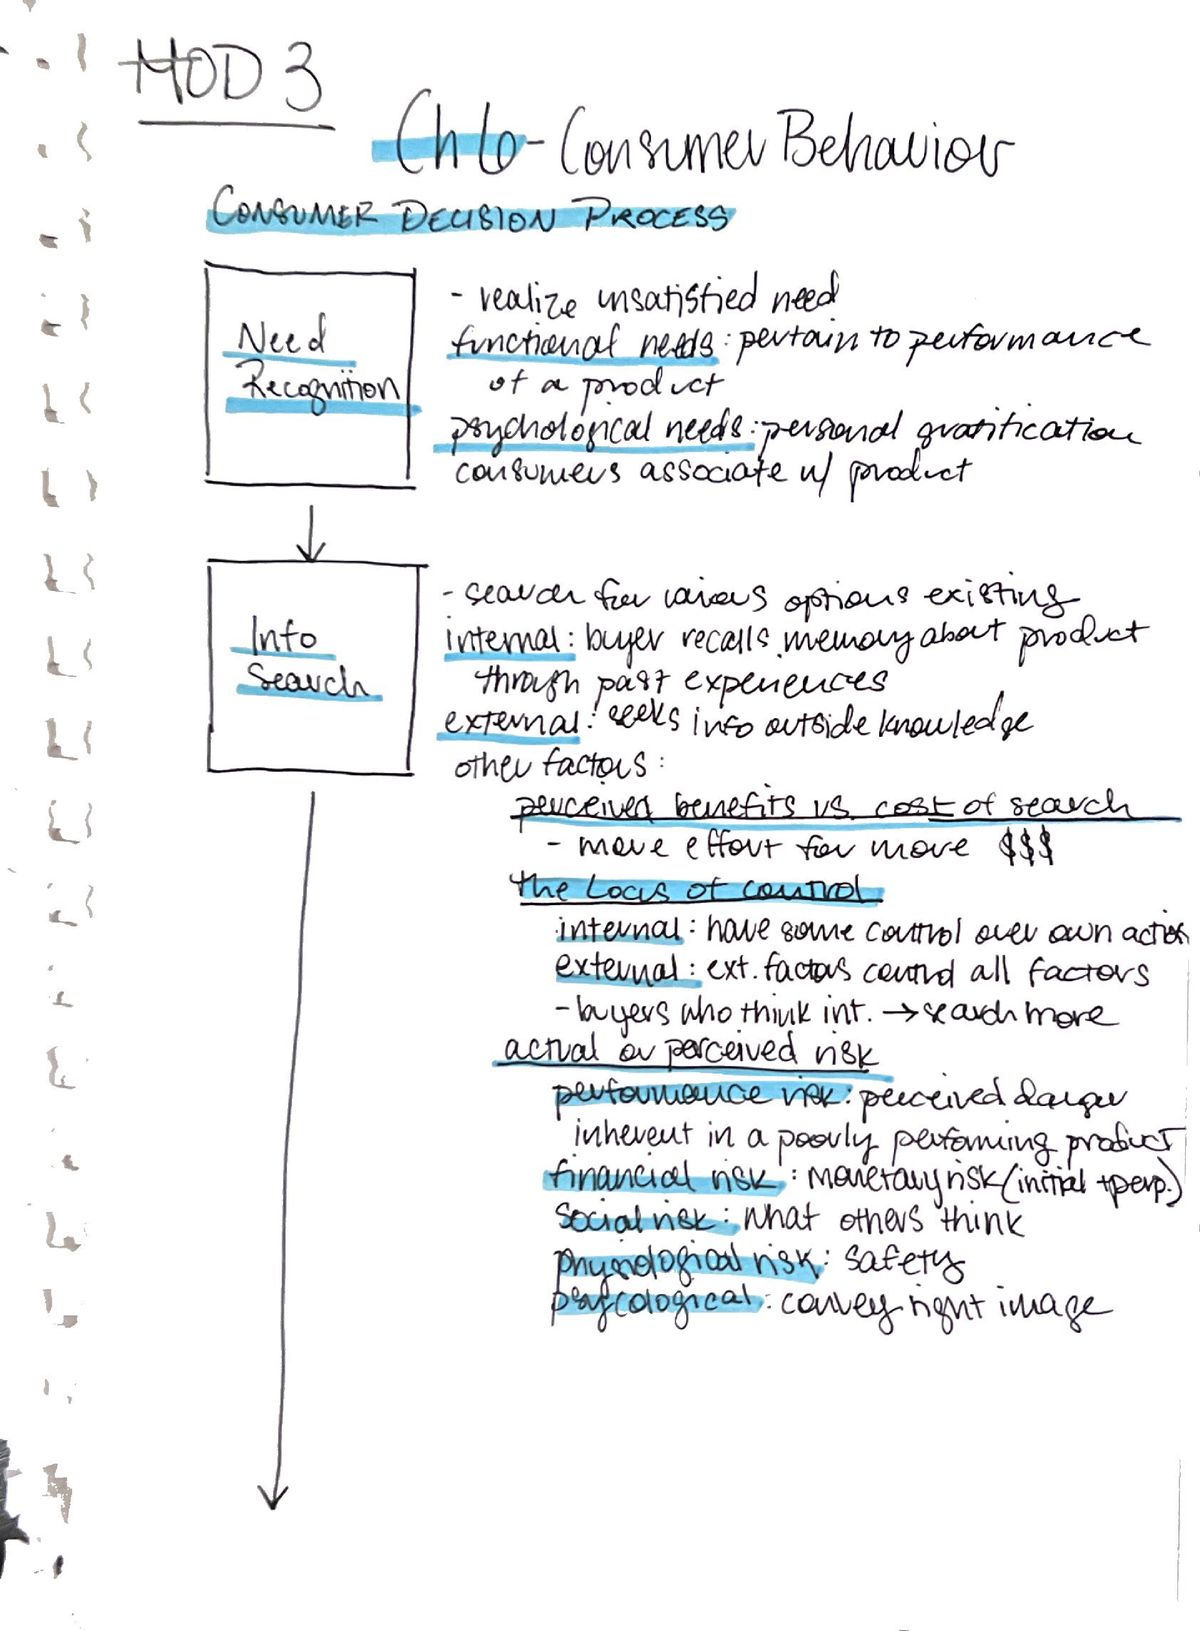 MOD 3
Ch 6 - Consumer Behavior
CONSUMER DECISION PROCESS
Need
Recognition
- realize unsatisfied need
functional needs: pertain to performance
of a product
psychological needs: personal gratification
consumers associate w/ product
Info
Search
- search for various options existing
internal: buyer recalls memory about product
through past experiences
external: seeks info outside knowledge
other factors:
perceived benefits vs. cost of search
- more effort for more $$$
the Locus of control
internal: have some control over own action
external: ext. factors control all factors
- buyers who think int. → search more
actual or perceived risk
performance risk: perceived danger
inherent in a poorly performing product
financial risk: monetary risk (initial + perp.)
social risk: what others think
physiological risk: safety
psycological: convey right image